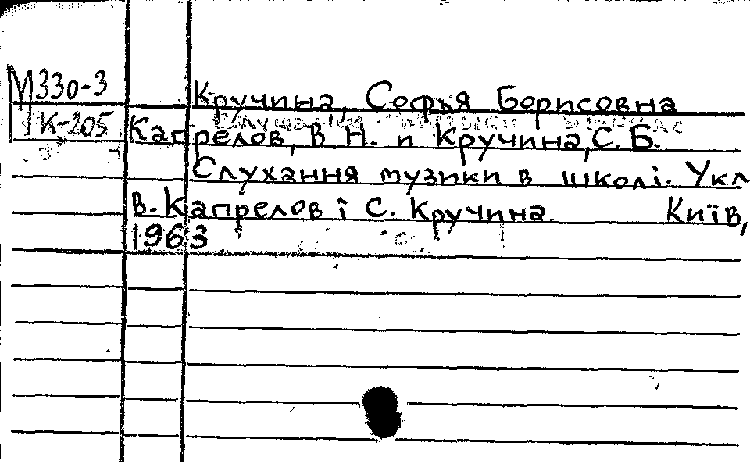 М330-3
Кручина, Софья Борисовна
К-205
Капрелов, В Н. и Кручина, С. Б.
Слухання музики в школі. Укл
В. Капрелов і С. Кручина Київ,
1963